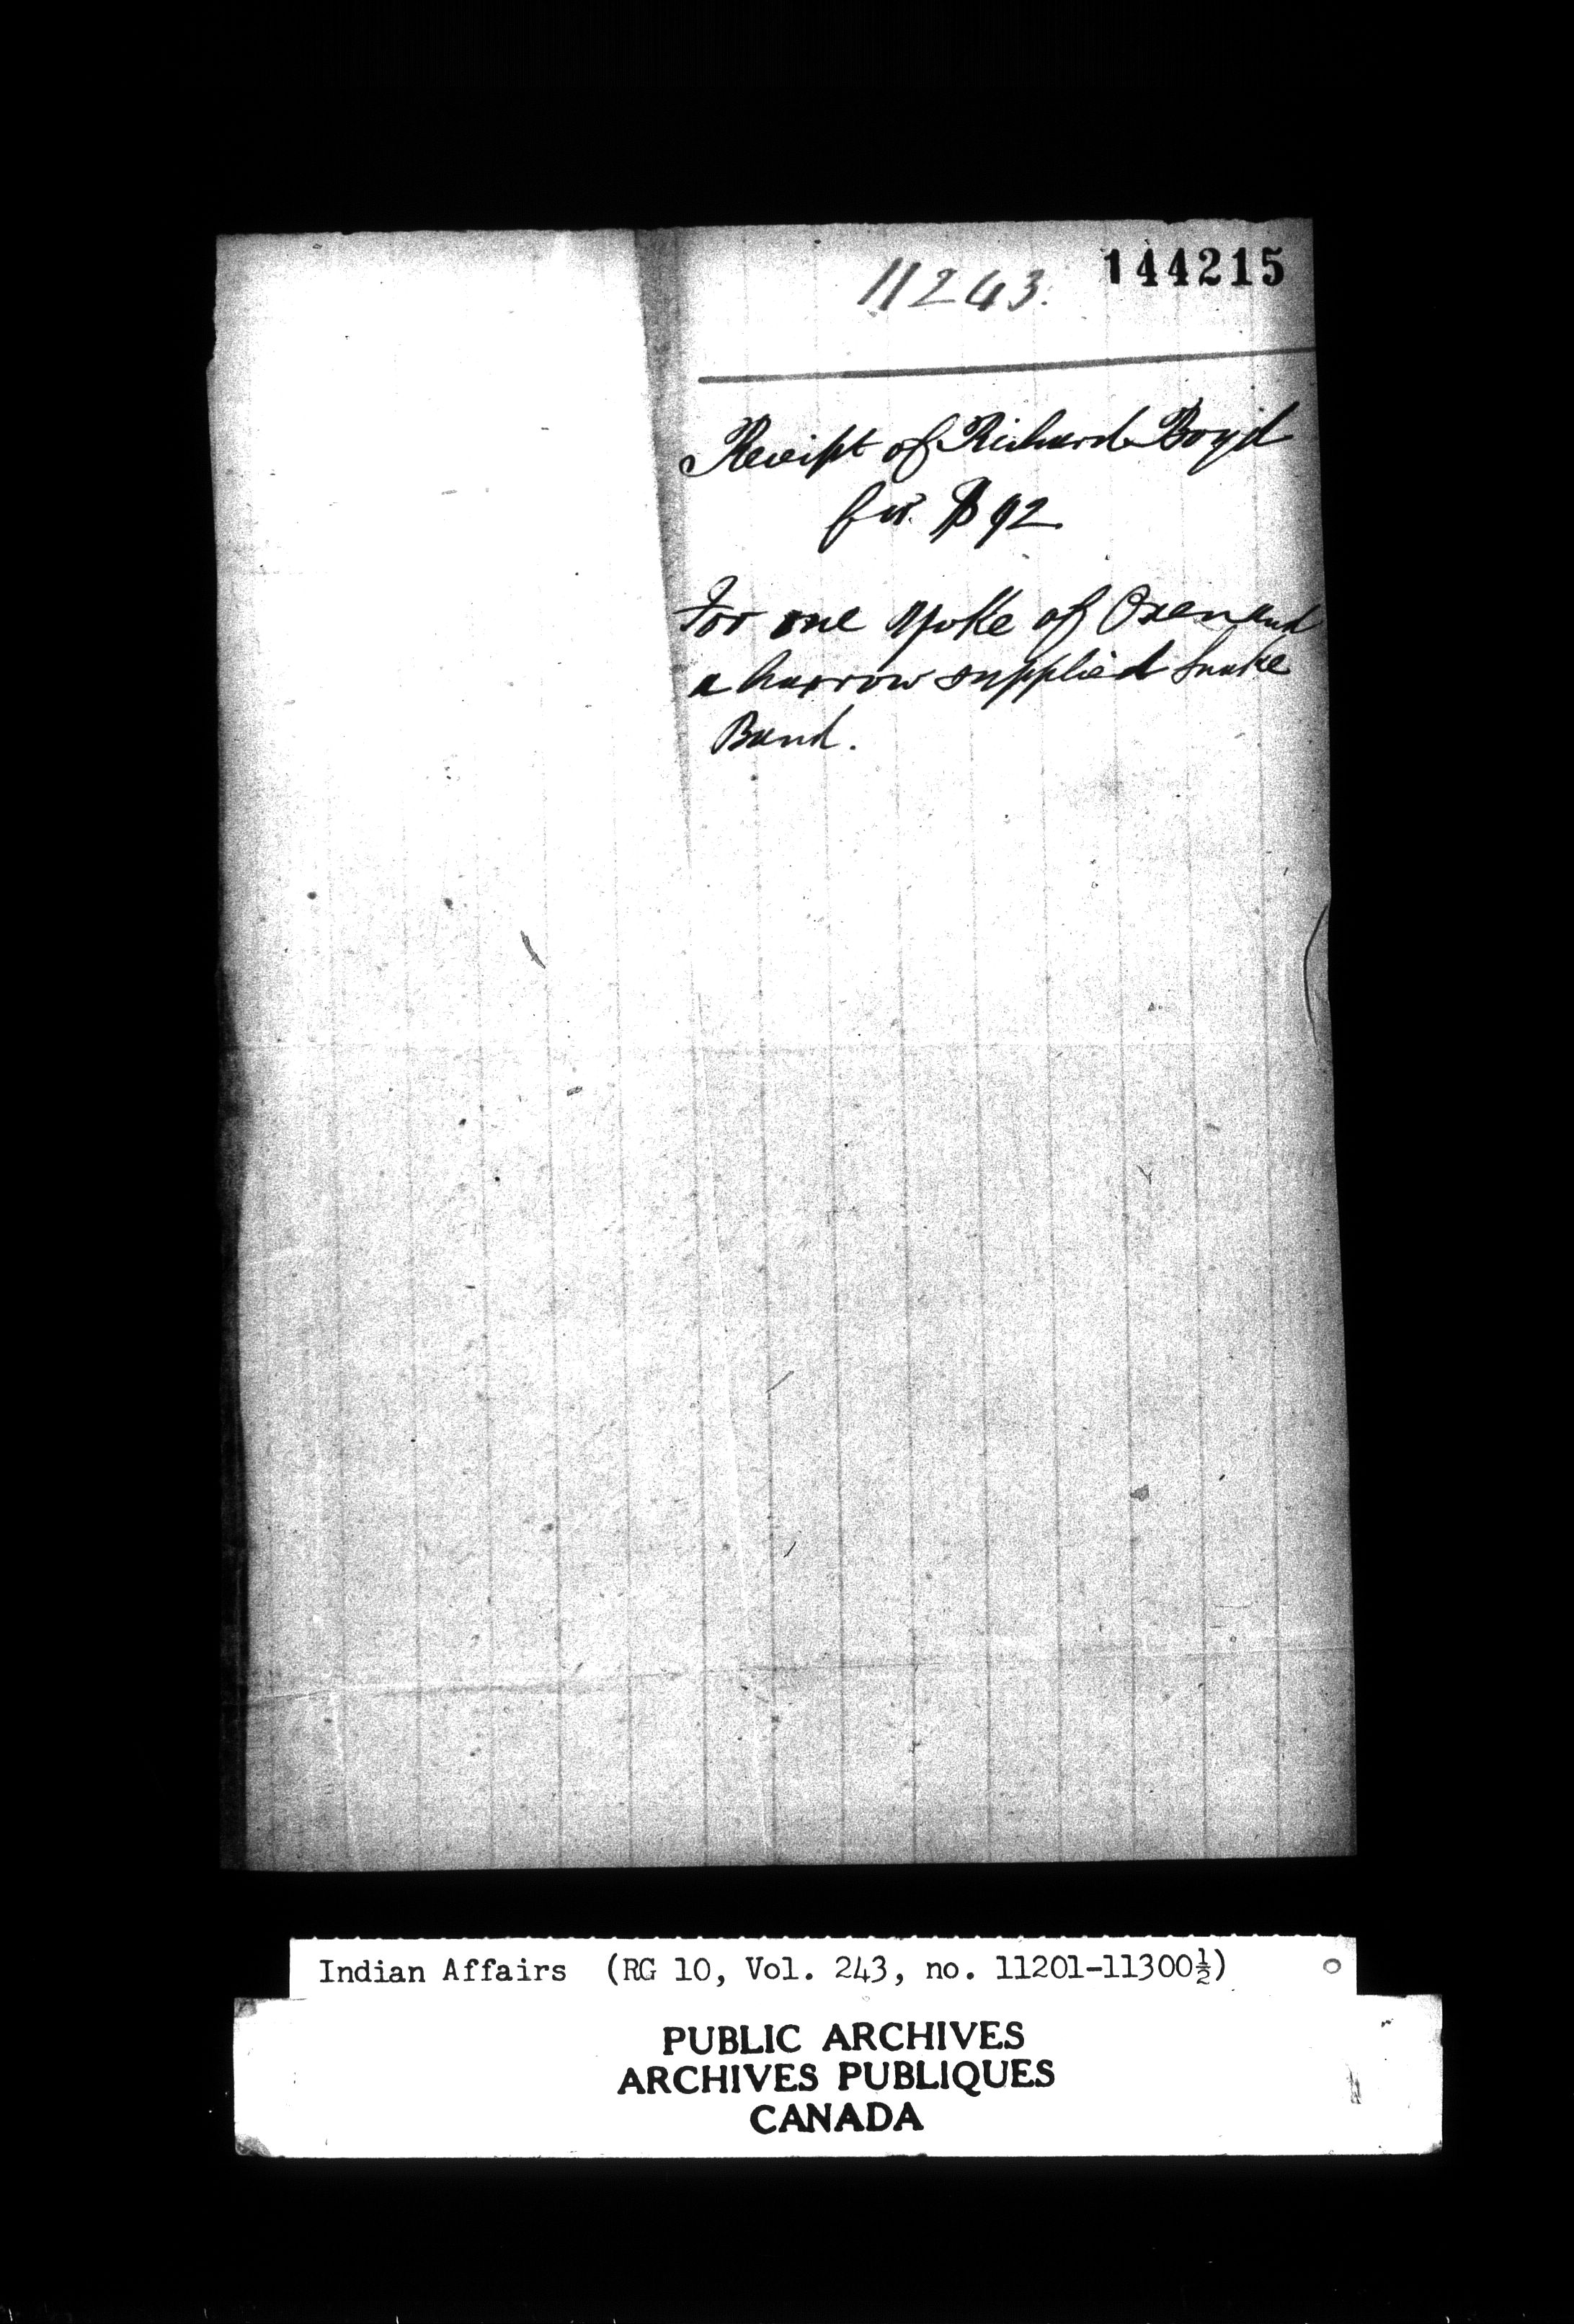 144215
11243.
Receipt of Richard Boyd
for $92
For one Yoke of Oxen and
a harrow supplied Snake
Band.
Indian Affairs (RG 10, Vol. 243, no. 11201-11300½)
PUBLIC ARCHIVES
ARCHIVES PUBLIQUES
CANADA